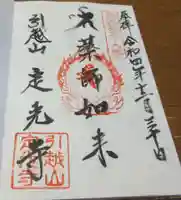 奉拝 令和四年十二月三十日
薬師如来
引越山
定光寺
引越山
定光寺